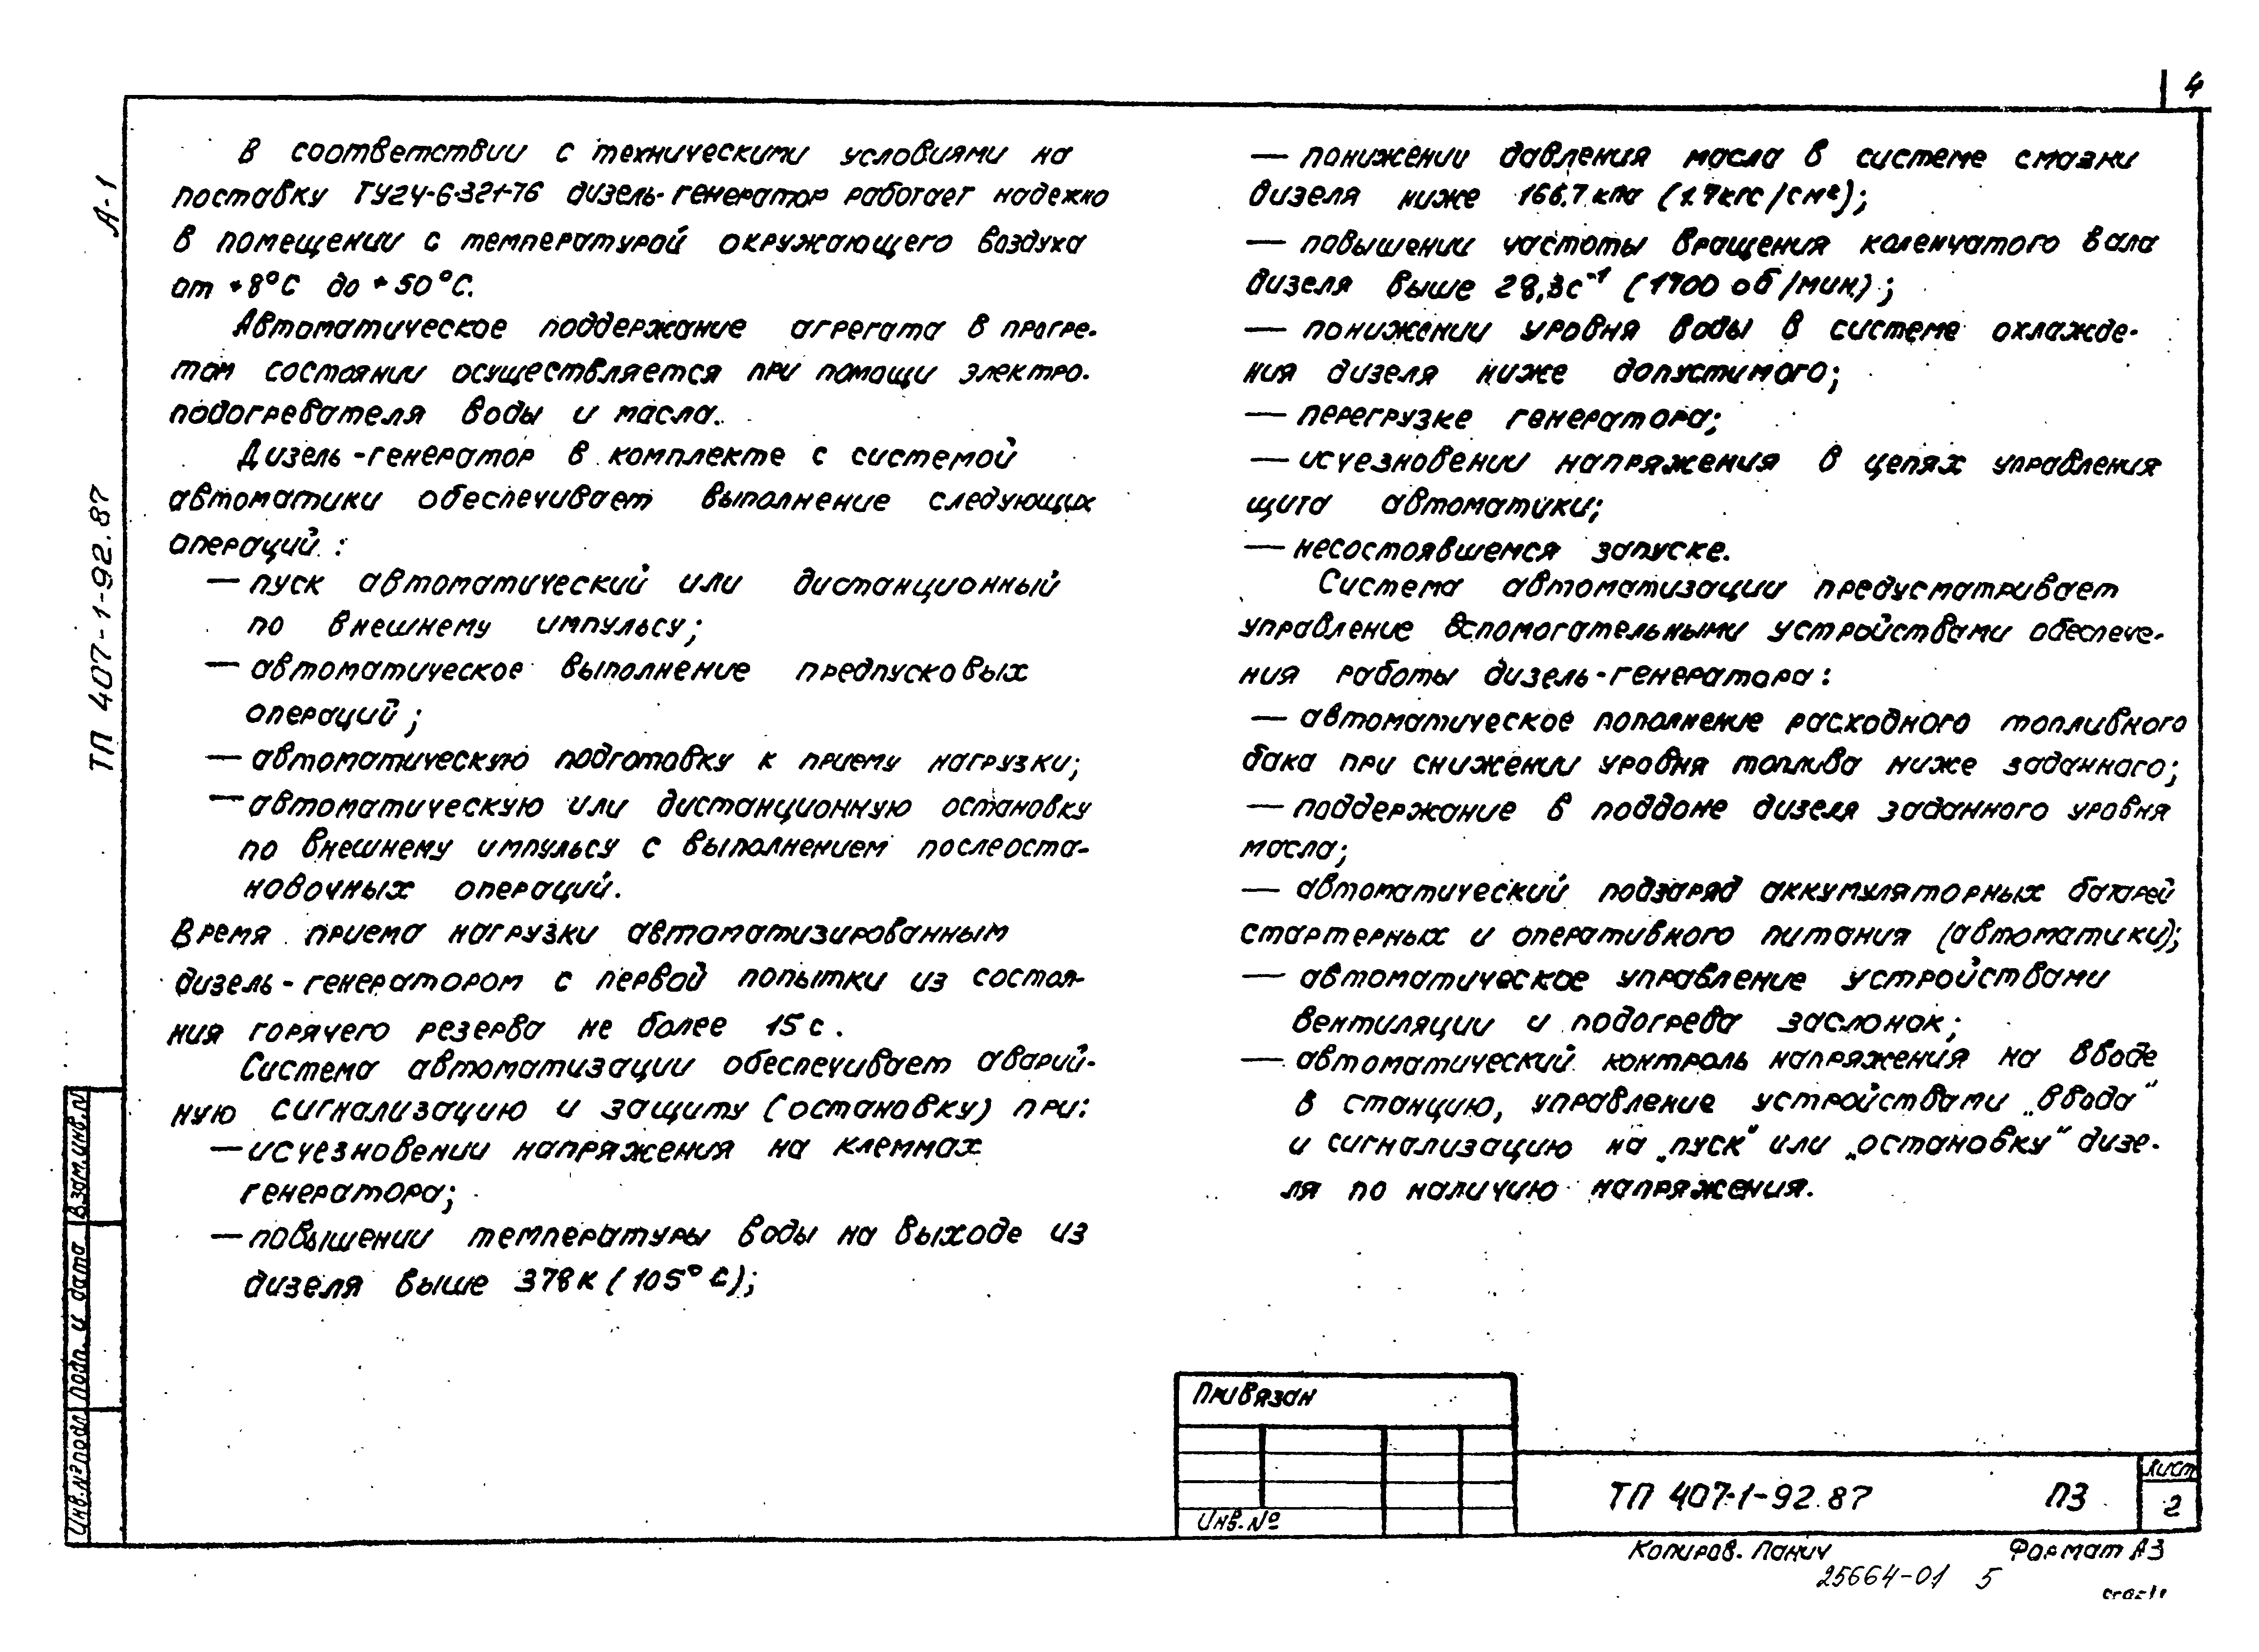 4
А-1
ТП 407-1-92.87
В соответствии с техническими условиями на
поставку ТУ24-6-321-76 дизель-генератор работает надежно
в помещении с температурой окружающего воздуха
от +8°С до +50°С.
Автоматическое поддержание агрегата в прогре-
том состоянии осуществляется при помощи электро-
подогревателя воды и масла.
Дизель-генератор в комплекте с системой
автоматики обеспечивает выполнение следующих
операций:
— пуск автоматический или дистанционный
по внешнему импульсу;
— автоматическое выполнение предпусковых
операций;
— автоматическую подготовку к приему нагрузки;
— автоматическую или дистанционную остановку
по внешнему импульсу с выполнением послеоста-
новочных операций.
Время приема нагрузки автоматизированным
дизель-генератором с первой попытки из состоя-
ния горячего резерва не более 15 с.
Система автоматизации обеспечивает аварий-
ную сигнализацию и защиту (остановку) при:
— исчезновении напряжения на клеммах
генератора;
— повышении температуры воды на выходе из
дизеля выше 378К (105°С);
— понижении давления масла в системе смазки
дизеля ниже 166,7 кПа (1.7кгс/см²);
— повышении частоты вращения коленчатого вала
дизеля выше 28,3с⁻¹ (1700 об/мин.);
— понижении уровня воды в системе охлажде-
ния дизеля ниже допустимого;
— перегрузке генератора;
— исчезновении напряжения в цепях управления
щита автоматики;
— несостоявшемся запуске.
Система автоматизации предусматривает
управление вспомогательными устройствами обеспече-
ния работы дизель-генератора:
— автоматическое пополнение расходного топливного
бака при снижении уровня топлива ниже заданного;
— поддержание в поддоне дизеля заданного уровня
масла;
— автоматический подзаряд аккумуляторных батарей
стартерных и оперативного питания (автоматики);
— автоматическое управление устройствами
вентиляции и подогрева заслонок;
— автоматический контроль напряжения на вводе
в станцию, управление устройствами „ввода"
и сигнализацию на „пуск" или „остановку" дизе-
ля по наличию напряжения.
Взам.инв.№
Подп. и дата
Инв.№подл.
Привязан
Инв.№
ТП 407-1-92.87 ПЗ
Лист
2
Копиров. Панич Формат А3
25664-01 5